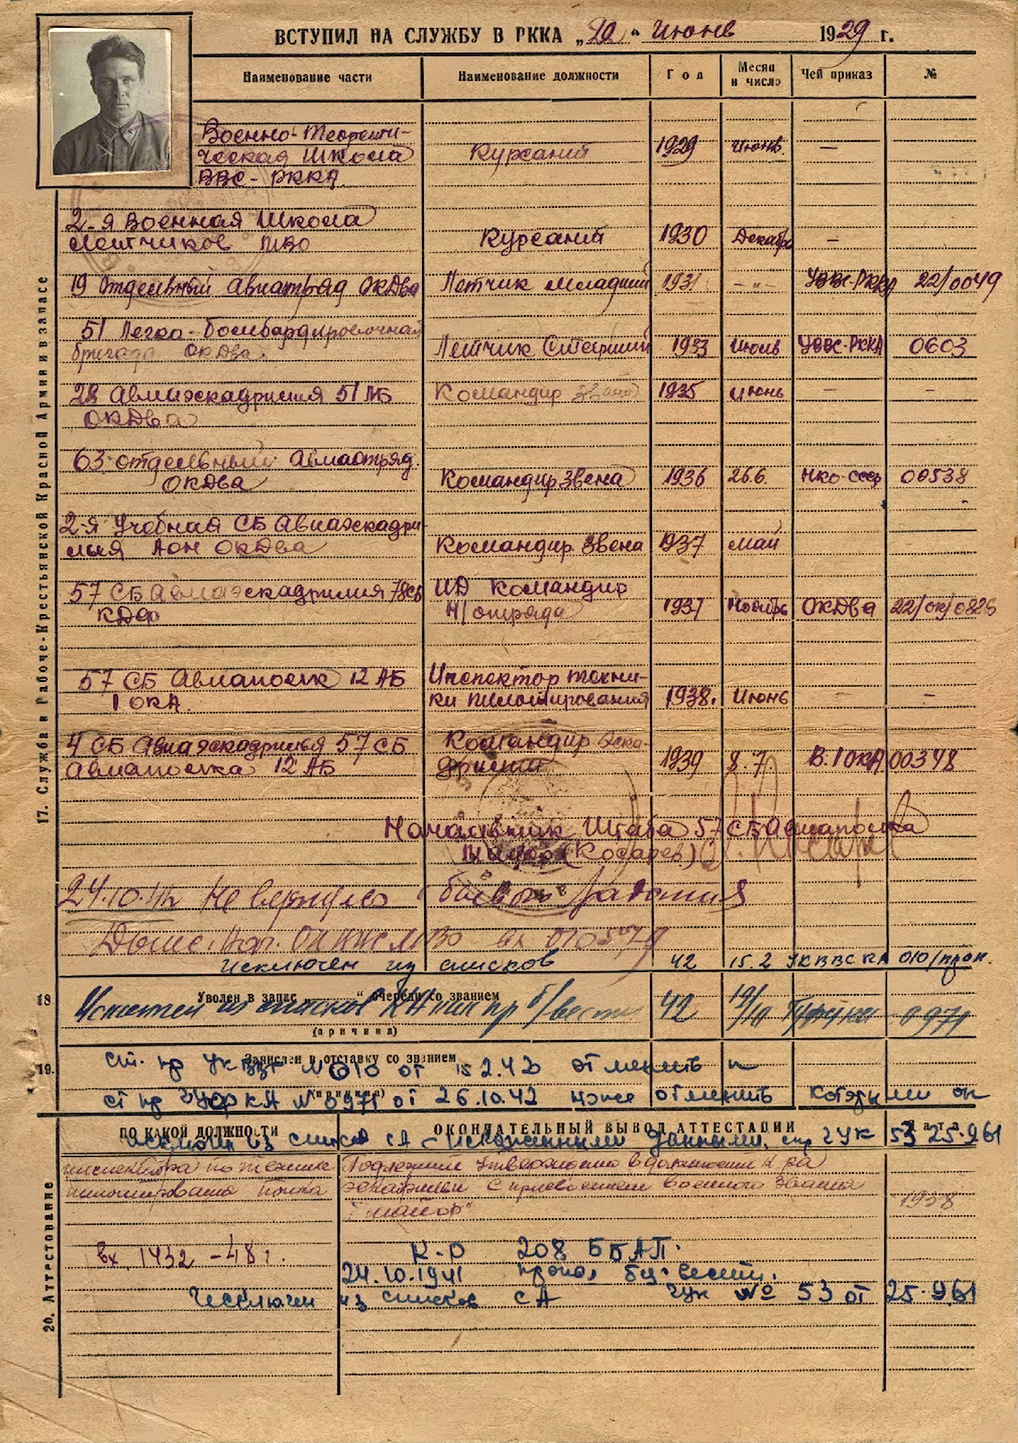 ВСТУПИЛ НА СЛУЖБУ В РККА „20“ Июня 1929 г.
Наименование части Наименование должности Год Месяц и число Чей приказ №
Военно-Теорети-
ческая Школа Курсант 1929 Июнь —
ВВС-РККА
2-я Военная Школа
Летчиков Курсант 1930 Декабрь —
19 отдельный Авиаотряд ОКДВА Летчик младший 1931 - „ - УВВС-РККА 22/0049
51 Легко-бомбардировочная
бригада ОКДВА. Летчик Старший 1933 Июль УВВС-РККА 0603
28 Авиаэскадрилья 51 ЛБ Командир звена 1935 Июнь — -
ОКДВА
63 отдельный Авиаотряд
ОКДВА Командир Звена 1936 26.6. НКО-СССР 00538
2-я Учебная СБ Авиаэскадри
лья АОН ОКДВА Командир Звена 1937 май
57 СБ Авиаэскадрилия 78 СБ ИД Командир
КДФ н/отряда 1937 Ноябрь ОКДВА 22/ок/0886
57 СБ Авиаполк 12 АБ Инспектор техни-
1 ОКА. ки пилотирования 1938. Июнь - -
4 СБ Авиаэскадрилья 57 СБ Командир Эска-
Авиаполка 12 АБ дрильи 1939 8.7 В.1 ОКА 00348
Начальник Штаба 57 СБ Авиаполка
майор (Косарев)
24.10. Не вернулся с боевого задания
исключен из списков 42 15.2 УКВВС КА 010/
17. Служба в Рабоче-Крестьянской Красной Армии и в запасе
18. Уволен в запас „ “ очереди со званием
Исключен из списков КА как пр б/вести 42 19/10 0971
(причина)
19. Зачислен в отставку со званием
ст. пр УКВВС №010 от 15.2.42 отменить и
ст пр ГУФ КА № 0971 от 26.10.42 тоже отменить которыми он
ПО КАКОЙ ДОЛЖНОСТИ ОКОНЧАТЕЛЬНЫЙ ВЫВОД АТТЕСТАЦИИ Дата
исключен из списков СА с искаженными данными. пр ГУК 53 25.9.61
инспектора по технике Подлежит утверждению в должности к-ра
пилотирования полка эскадрильи с присвоением военного звания
„майор“ 1938
20. Аттестование
вх. 1432 - 48 г. К-р 208 ББАП.
24.10.1941 пропал без вести.
Исключен из списков СА ГУК № 53 от 25.9.61